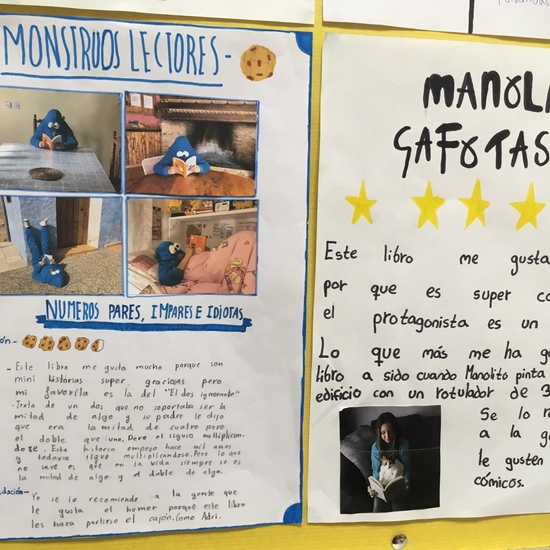 MONSTRUOS LECTORES-
NUMEROS PARES, IMPARES E IDIOTAS
- Este libro me gusta mucho porque son
mini historias super graciosas pero
mi favorita es la del "El dos ignorante"
- Trata de un dos que no soportaba ser la
mitad de algo y su padre le dijo
que era la mitad de cuatro pero
el doble que uno. Pero el siguio multiplican-
dose. Esta historia empezo hace mil anos
y todavia sigue multiplicandose. Pero lo que
no save es que en la vida siempre se es
la mitad de algo y el doble de algo.
Yo se lo recomiendo a la gente que
le gusta el humor porque este libro
les hara partirse el cajón. Como Adri.
MANOL
GAFOTAS
Este libro me gusta
por que es super co
el protagonista es un
Lo que más me ha g
libro a sido cuando Manolito pinta
edificio con un rotulador de 3
Se lo r
a la g
le gusten
cómicos.